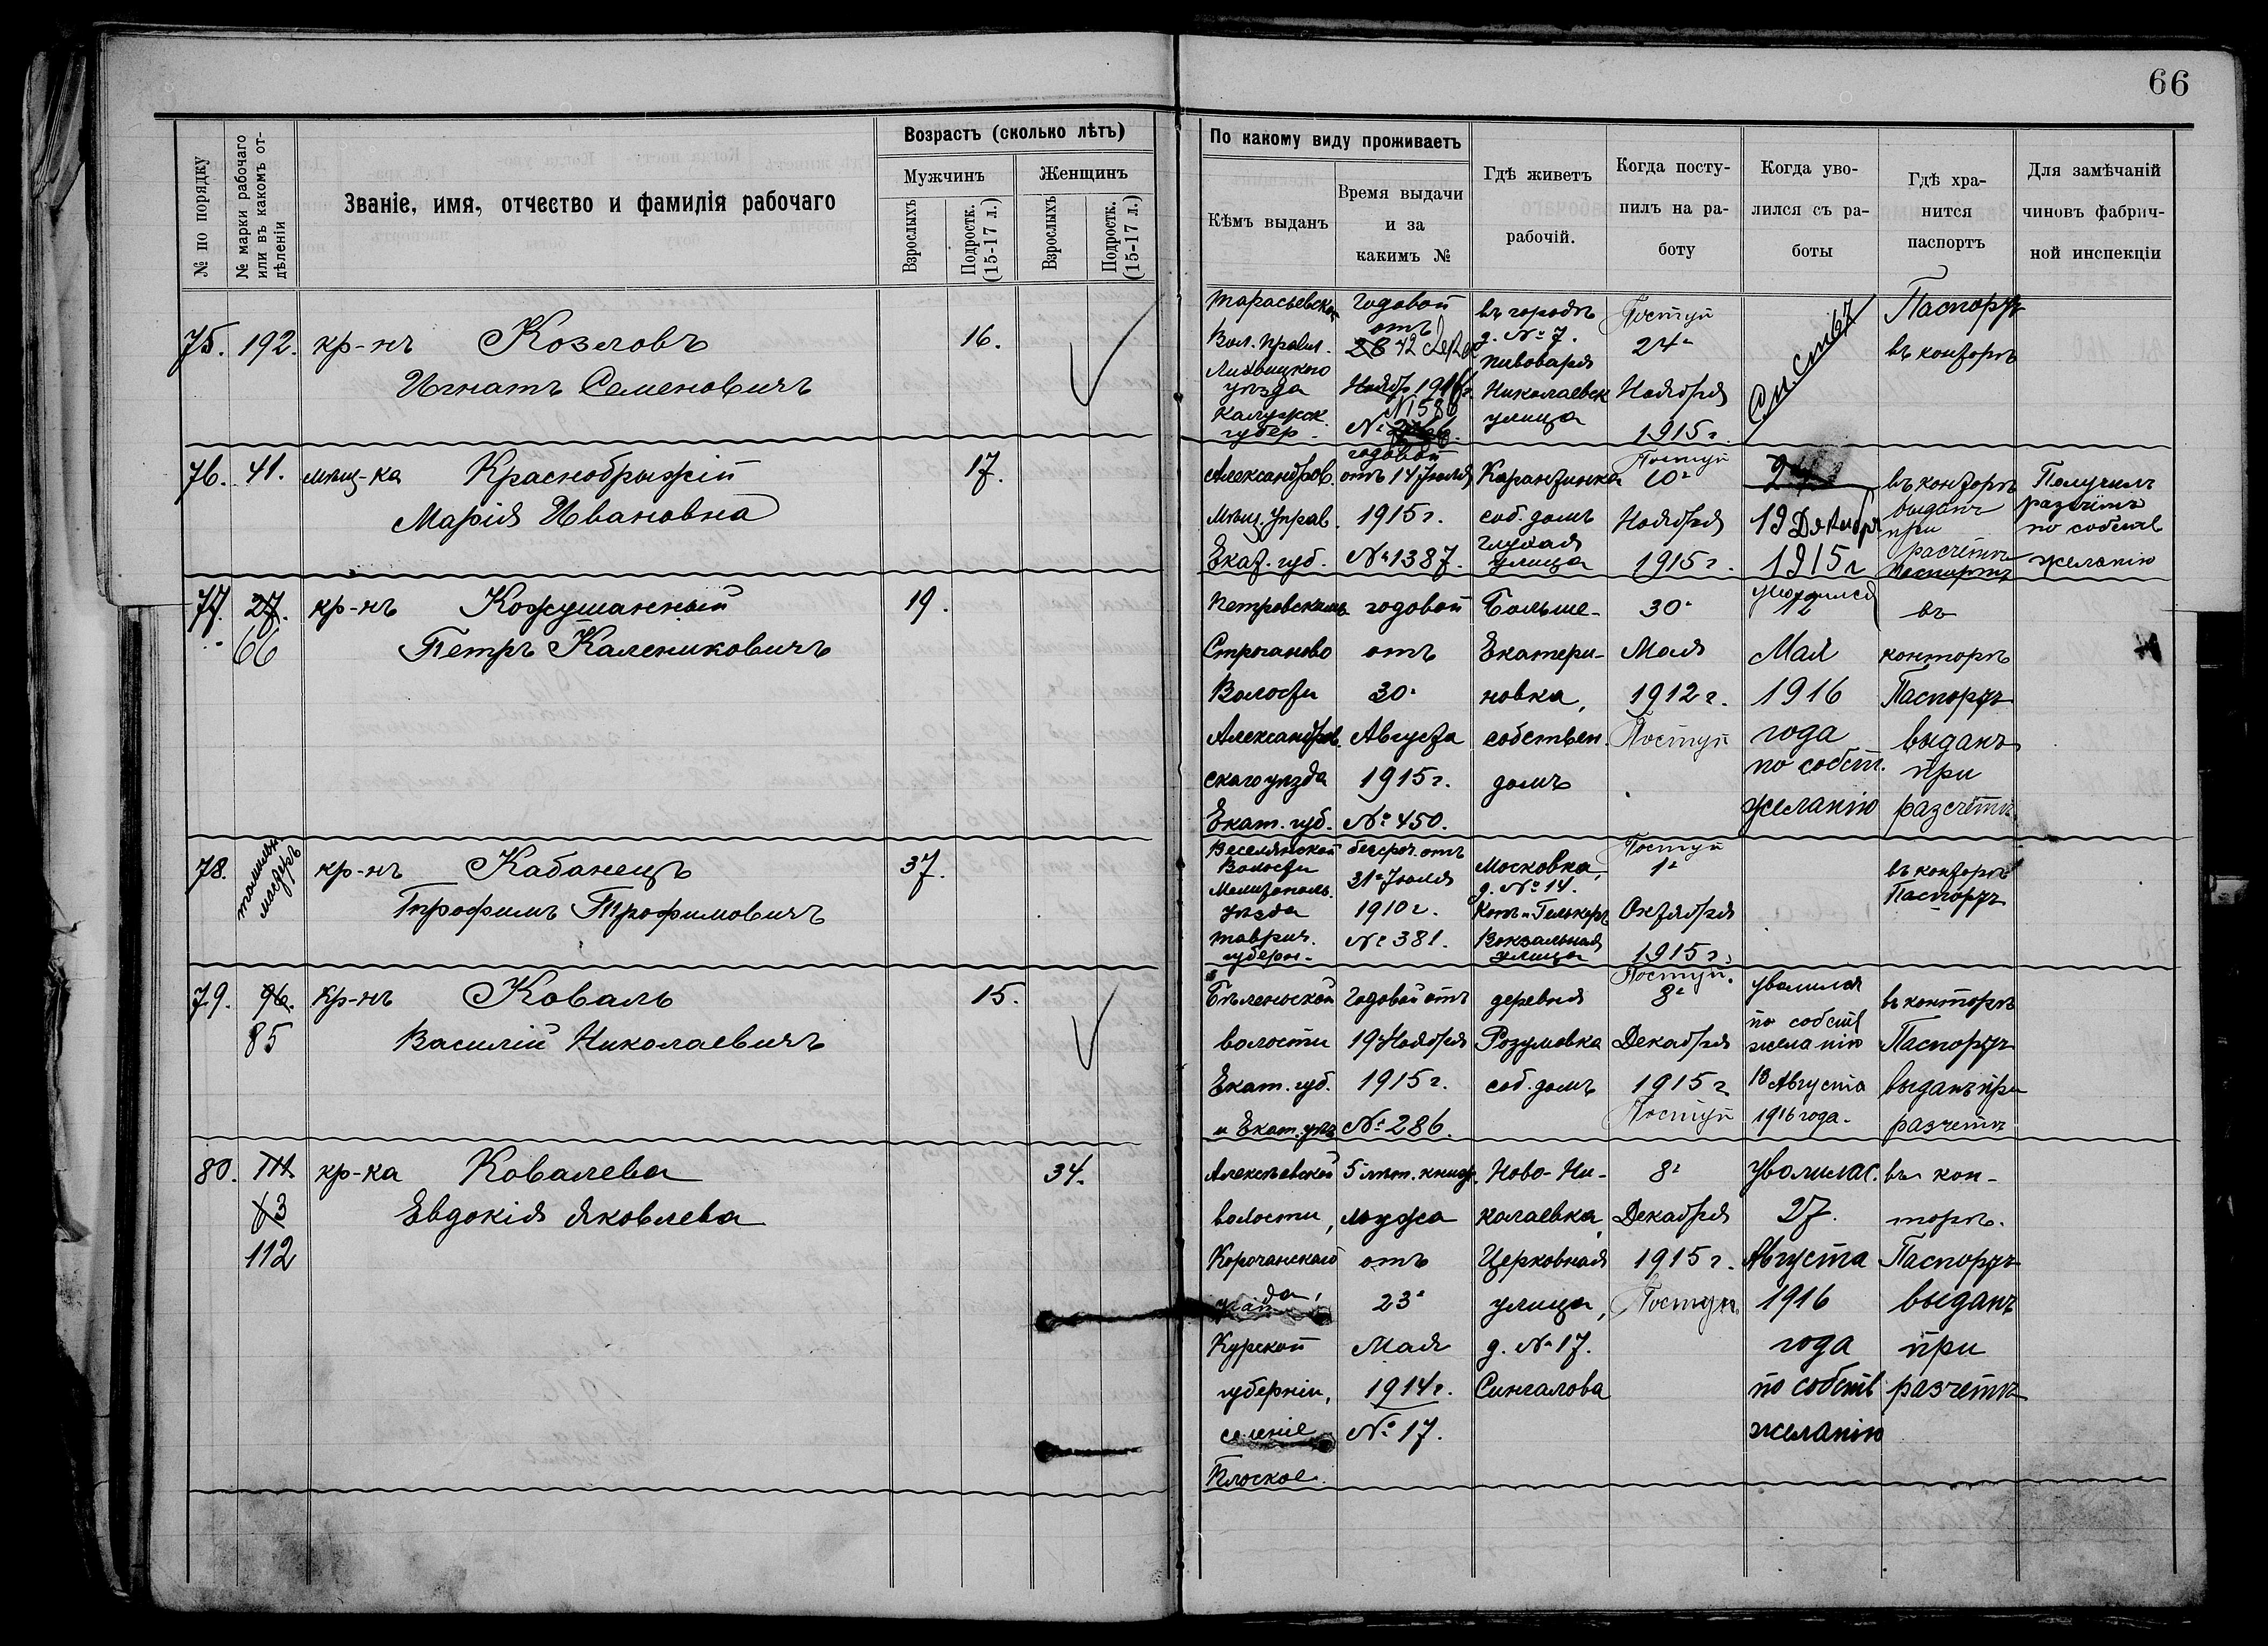 66
№ по порядку
№ марки рабочаго или въ какомъ отдѣленіи
Званіе, имя, отчество и фамилія рабочаго
Возрастъ (сколько лѣтъ)
Мужчинъ
Женщинъ
Взрослыхъ
Подростк. (15-17 л.)
Взрослыхъ
Подростк. (15-17 л.)
По какому виду проживаетъ
Кѣмъ выданъ
Время выдачи
и за
какимъ №
Гдѣ живетъ
рабочій.
Когда посту-
пилъ на ра-
боту
Когда уво-
лился съ ра-
боты
Гдѣ хра-
нится
паспортъ
Для замѣчаній
чиновъ фабрич-
ной инспекціи
75. 192. кр-нъ Козловъ 16.
Игнатъ Семеновичъ
Вол. правл.
Лихвицкого
уѣзда
Калужск.
губер.
Годовой
отъ
1916 г.
№ 1586
въ городѣ
д. № 7.
пивоваря
Николаевск
улица
Поступ
24
Ноября
1915 г.
Паспортъ
въ конторѣ
76. 41. мѣщ-ка Краснобрыжій 17.
Марія Ивановна
Александров.
мѣщ. управ.
Екат. губ.
годовой
отъ 14 Іюля
1915 г.
№ 1387.
Карантинка
соб. домъ
глухая
улица
Поступ
10
Ноября
1915 г.
19 Декабря
1915 г
въ конторѣ
выданъ
при
расчетѣ
паспортъ
Получилъ
разсчетъ
по собств
желанію
77. 27. кр-нъ Кожушанный 19.
66 Петръ Калениковичъ
Строганово
Волости
Александров
скаго уѣзда
Екат. губ.
годовой
отъ
30
Августа
1915 г.
№ 450.
Больше-
Екатери-
новка,
собствен.
домъ
30
Мая
1912 г.
Поступ
уволился
12
Мая
1916
года
по собст.
желанію
въ
конторѣ
Паспортъ
выданъ
при
разсчетѣ
78. мастеръ кр-нъ Кабанецъ 37.
Трофимъ Трофимовичъ
Веселянской
Волости
Мелитополь.
уѣзда
Таврич.
губерн.
безсроч. отъ
31 Іюля
1910 г.
№ 381.
Московка,
д. № 14.
Вокзальная
улица
Поступ
1
Октября
1915 г.
въ конторѣ
Паспортъ
79. 96. кр-нъ Коваль 15.
85 Василій Николаевичъ
Бѣленьской
волости
Екат. губ.
и Екат. уѣз
Годовой отъ
19 Ноября
1915 г.
№ 286.
деревня
Розумовка
соб. домъ
Поступ.
8
Декабря
1915 г
Поступ
уволился
по собств
желанію
13 Августа
1916 года.
въ конторѣ
Паспортъ
выданъ при
разчетѣ
80. кр-ка Ковалева 34.
63 Евдокія Яковлева
112
Алексѣевской
волости,
Корочанскаго
уѣзда,
Курской
губерніи,
селеніе
Плоское.
5 лѣт. книж.
мужа
отъ
23
Мая
1914 г.
№ 17.
Ново-Ни-
колаевка,
Церковная
улица,
д. № 17.
Сингалова
8
Декабря
1915 г.
Поступ
уволилас.
27.
Августа
1916
года
по собств
желанію
въ кон-
торѣ.
Паспортъ
выданъ
при
разчетѣ